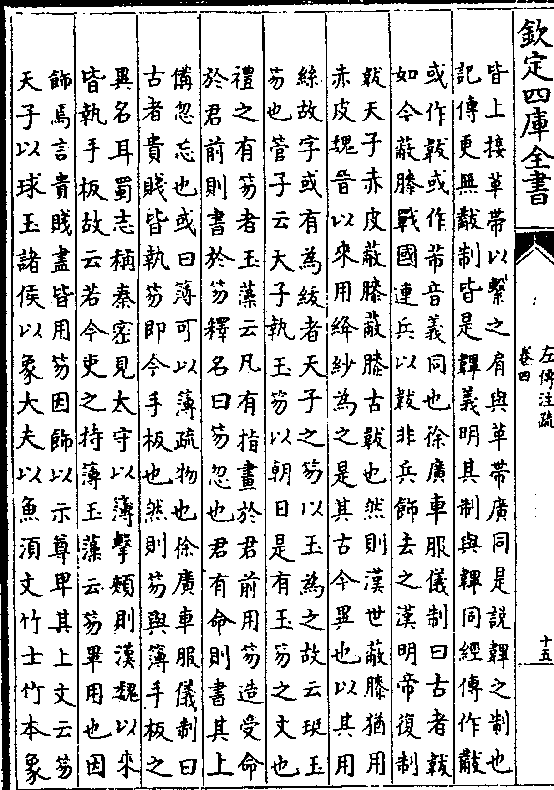 欽定四庫全書
左傳注疏
卷四
十五
皆上接革帶以繫之肩與革帶廣同是說韠之制也
記傳更無黻制皆是韠義明其制與韠同經傳作黻
或作韍或作芾音義同也徐廣車服儀制曰古者韍
如今蔽膝戰國連兵以韍非兵飾去之漢明帝復制
韍天子赤皮蔽膝蔽膝古韍也然則漢世蔽膝猶用
赤皮魏晉以來用絳紗為之是其古今異也以其用
絲故字或有為紱者天子之笏以玉為之故云珽玉
笏也管子云天子執玉笏以朝日是有玉笏之文也
禮之有笏者玉藻云凡有指畫於君前用笏造受命
於君前則書於笏釋名曰笏忽也君有命則書其上
備忽忘也或曰簿可以薄疏物也徐廣車服儀制曰
古者貴賤皆執笏即今手板也然則笏與簿手板之
異名耳蜀志稱秦宓見太守以薄擊頰則漢魏以來
皆執手板故云若今吏之持薄玉藻云笏畢用也因
飾焉言貴賤盡皆用笏因飾以示尊卑其上文云笏
天子以球玉諸侯以象大夫以魚須文竹士竹本象